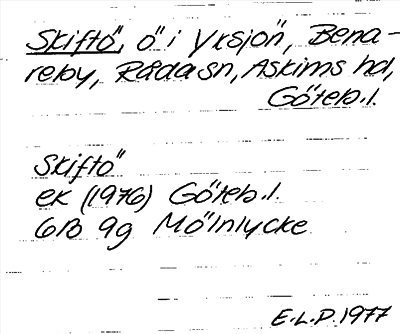 Skiftö, ö i Yxsjön, Bena-
reby, Råda sn, Askims hd,
Göteb.l.
Skiftö
ek (1976) Göteb.l.
6B 9g Mölnlycke
E.L.P. 1977